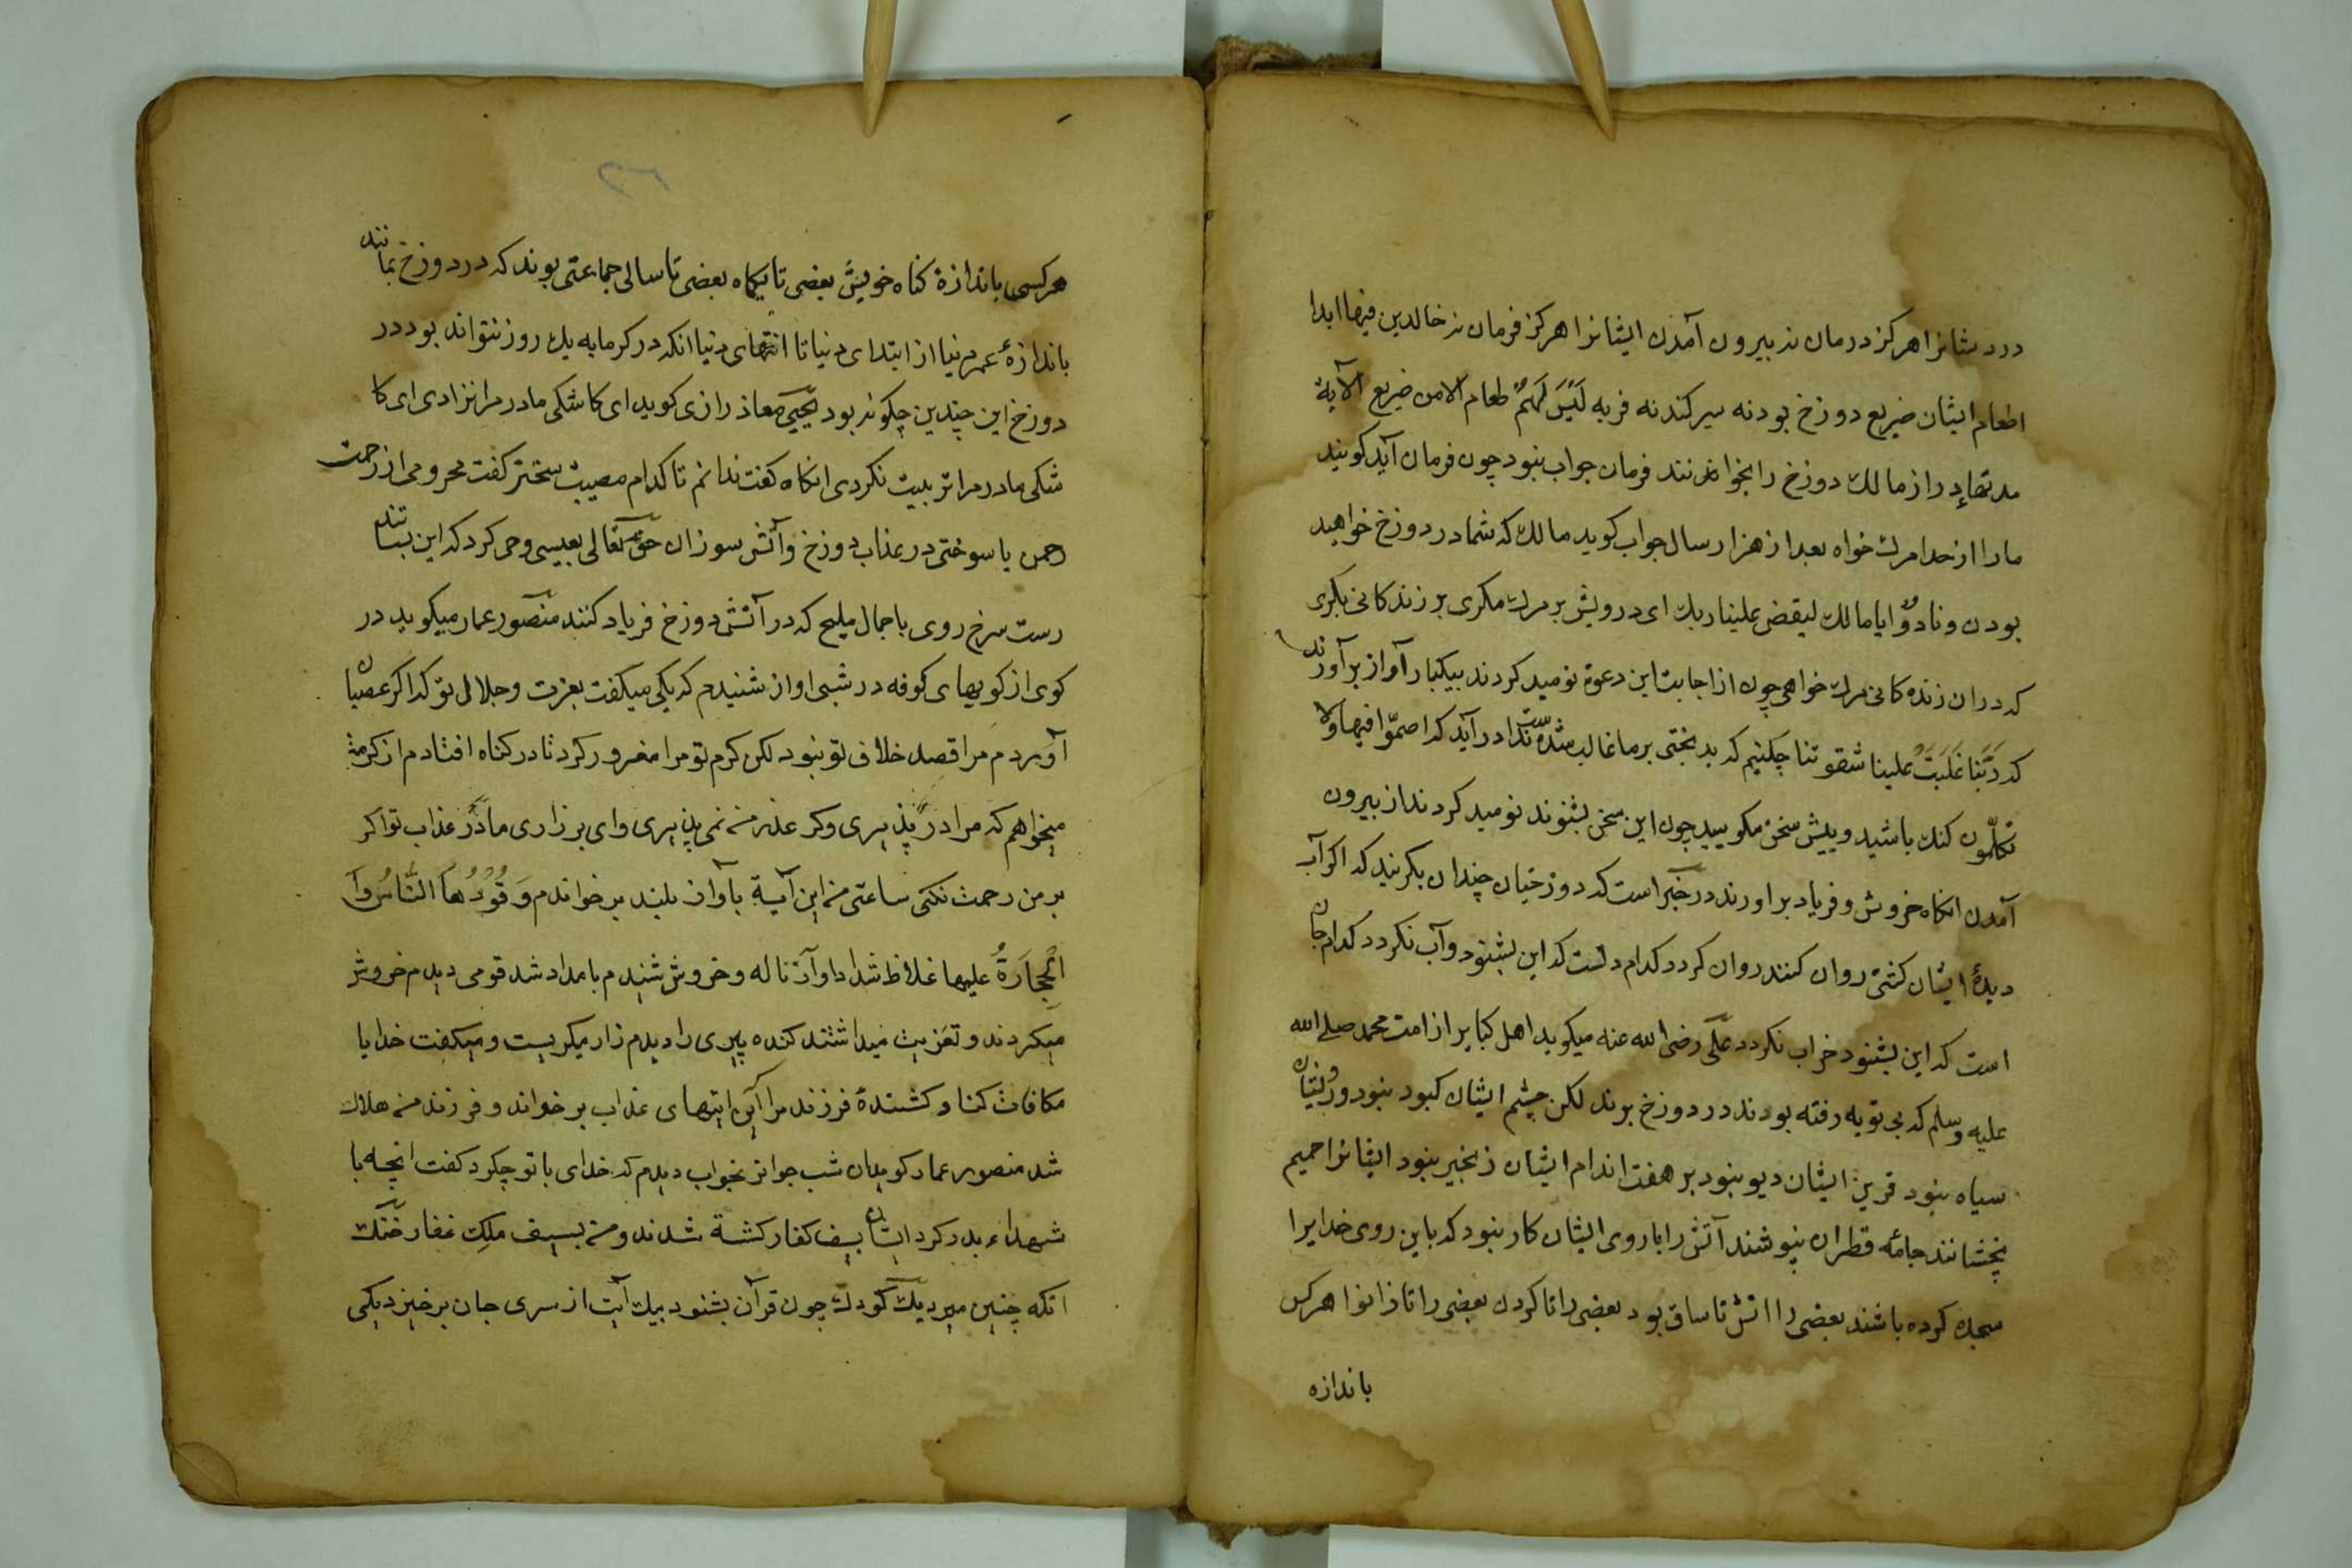 درد شانرا هرکز درمان نه بیرون آمدن ایشانرا هرکز فرمان نه خالدین فیها ابدا
طعام ایشان ضریع دوزخ بود نه سیر کند نه فربه لَیْسَ لَهُمْ طعام الا من ضریع الآیة
مدتهاء دراز مالك دوزخ را بخوانند فرمان جواب نبود چون فرمان آید کویند
مارا از خدا مرك خواه بعد از هزار سال جواب کوید مالك که شما در دوزخ خواهید
بودن ونادوا یا مالك لیقض علینا ربك ای درویش بر مرك مکری بر زندکانی بکری
که دران زنده کانی مرك خواهی چون از اجابت این دعوة نومید کردند بیکبار آواز برآورند
که رَبَّنَا غَلَبَتْ علینا شقوتنا چکنیم که بدبختی بر ما غالب شده است ندا درآید که اخسئوا فیها ولا
تکلّمون کنك باشید و پیش سخن مکویید چون این سخن بشنوند نومید کردند از بیرون
آمدن انکاه خروش و فریاد براورند در خبر است که دوزخیان چندان بکریند که اکر آب
دیدهٔ ایشان کشتی روان کنند روان کردد کدام دلست که این بشنود و آب نکردد کدام جان
است که این بشنود خراب نکردد علی رضی الله عنه میکوید اهل کبایر از امت محمد صلی الله
علیه وسلم که بی توبه رفته بودند در دوزخ برند لکن چشم ایشان کبود نبود و رویشان
سیاه نبود قرین ایشان دیو نبود بر هفت اندام ایشان زنجیر نبود ایشانرا حمیم
نچشانند جامهٔ قطران نپوشند آتش را با روی ایشان کار نبود که باین روی خدایرا
سجده کرده باشند بعضی را اتش تا ساق بود بعضی را تا کردن بعضی را تا زانو هر کس
باندازه
۳۶
هرکسی باندازهٔ کناه خویش بعضی تا یکماه بعضی تا سالی جماعتی بوند که در دوزخ بمانند
باندازهٔ عمر دنیا از ابتدای دنیا تا انتهای دنیا انکه در کرمابه یك روز نتواند بود در
دوزخ این چندین چکونه بود یحیی معاذ رازی کوید ای کاشکی مادر مرا نزادی ای کا
شکی مادر مرا تربیت نکردی انکاه کفت ندانم تا کدام مصیبت سختتر کفت محرومی از رحمت
رحمن یا سوختی در عذاب دوزخ وآتش سوزان حق تعالی بعیسی وحی کرد که این بسا تند
رست سرخ روی با جمال ملیح که در آتش دوزخ فریاد کنند منصور عمار میکوید در
کوی از کویهای کوفه در شبی اواز شنیدم که یکی میکفت بعزت وجلال تو که اکر عصیان
آوردم مرا قصد خلاف تو نبود لکن کرم تو مرا مغرور کرد تا در کناه افتادم از کرمت
میخواهم که مرا در پذیری وکر عذر من نمی پذیری وای بر زاری ما در عذاب تو اکر
بر من رحمت نکنی ساعتی من این آیة بآواز بلند بر خواندم وَقُوْدُهَا النَّاسُ وَا
لْحِجَارَةُ علیها غلاظ شداد اواز ناله وخروش شنیدم بامداد شد قومی دیدم خروش
میکردند و تعزیت میداشتند کنده پیری را دیدم زار میکریست ومیکفت خدایا
مکافات کناد کشندهٔ فرزند مرا این ایتهای عذاب بر خواند و فرزند من هلاك
شد منصور عمار کوید ان شب جوانرا بخواب دیدم که خدای با تو چکرد کفت انچه با
شهداء بدر کرد ایشان بسیف کفار کشته شدند ومن بسیف ملِك غفار خنك
انکه چنین میرد یك کودك چون قرآن بشنود بیك آیت از سری جان برخیزد یکی